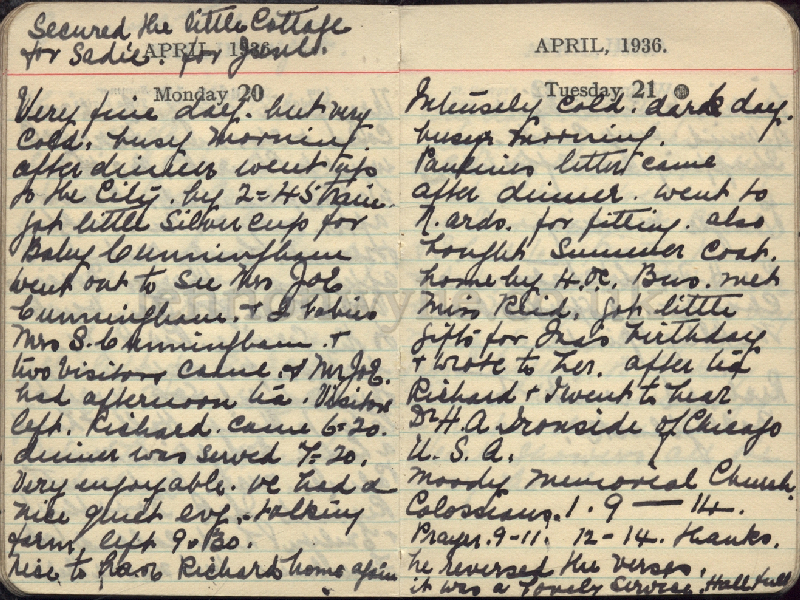 Secured the little Cottage
for Sadie. for June.
APRIL, 1936.
Monday 20
Very fine day. but very
Cold. busy morning.
after dinner went up
to the City. by 2=45 train.
got little Silver cup for
Baby Cunningham
went out to see Mrs Joe
Cunningham. + 2 babies
Mrs S. Cunningham. +
two visitors came. + Mr Joe.
had afternoon tea. Visitors
left. Richard. came 6=20.
dinner was served 7=20.
Very enjoyable. we had a
nice quiet evg. talking
left 9.30.
nice to have Richard home again
APRIL, 1936.
Tuesday 21
Intensely cold. dark day.
busy morning.
letter came
after dinner. went to
for fitting. also
bought Summer Coat.
home by Bus. met
Miss Reid. got little
gifts for Ina's birthday
+ wrote to her. after tea
Richard + I went to hear
Dr H. A. Ironside of Chicago
U. S. A.
Moody Memorial Church.
Colossians. 1. 9 — 14.
Prayer. 9-11. 12-14. thanks.
he reversed the verses.
it was a lovely Service. Hall full